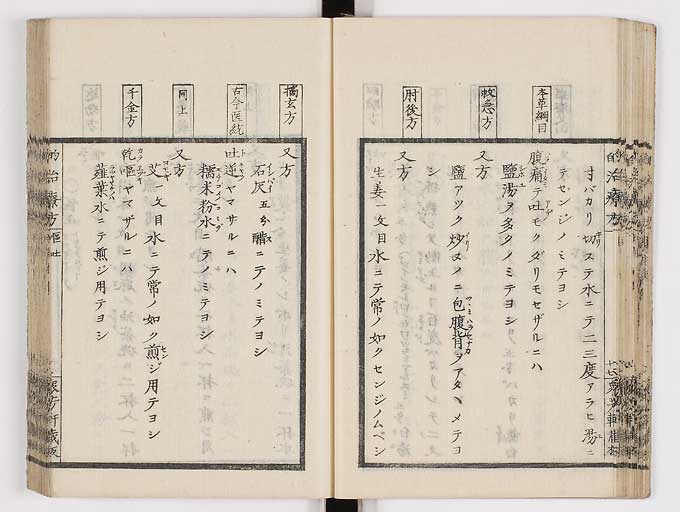 本草綱目
救急方
肘後方
寸バカリ切ステ水ニテ二三度アラヒ湯ニ
テセンジノミテヨシ
腹痛テ吐モクダリモセザルニハ
鹽湯ヲ多クノミテヨシ
又方
鹽アツク炒ヌノニ包腹背ヲアタヽメテヨ
シ
又方
生姜一文目水ニテ常ノ如クセンジノムベシ
摘玄方
古今医統
同上
千金方
又方
石灰五分醋ニテノミテヨシ
吐逆ヤマザルニハ
糯米粉水ニテノミテヨシ
又方
艾一文目水ニテ常ノ如ク煎ジ用テヨシ
乾嘔ヤマザルニハ
薤葉水ニテ煎ジ用テヨシ
的治療方 嘔吐